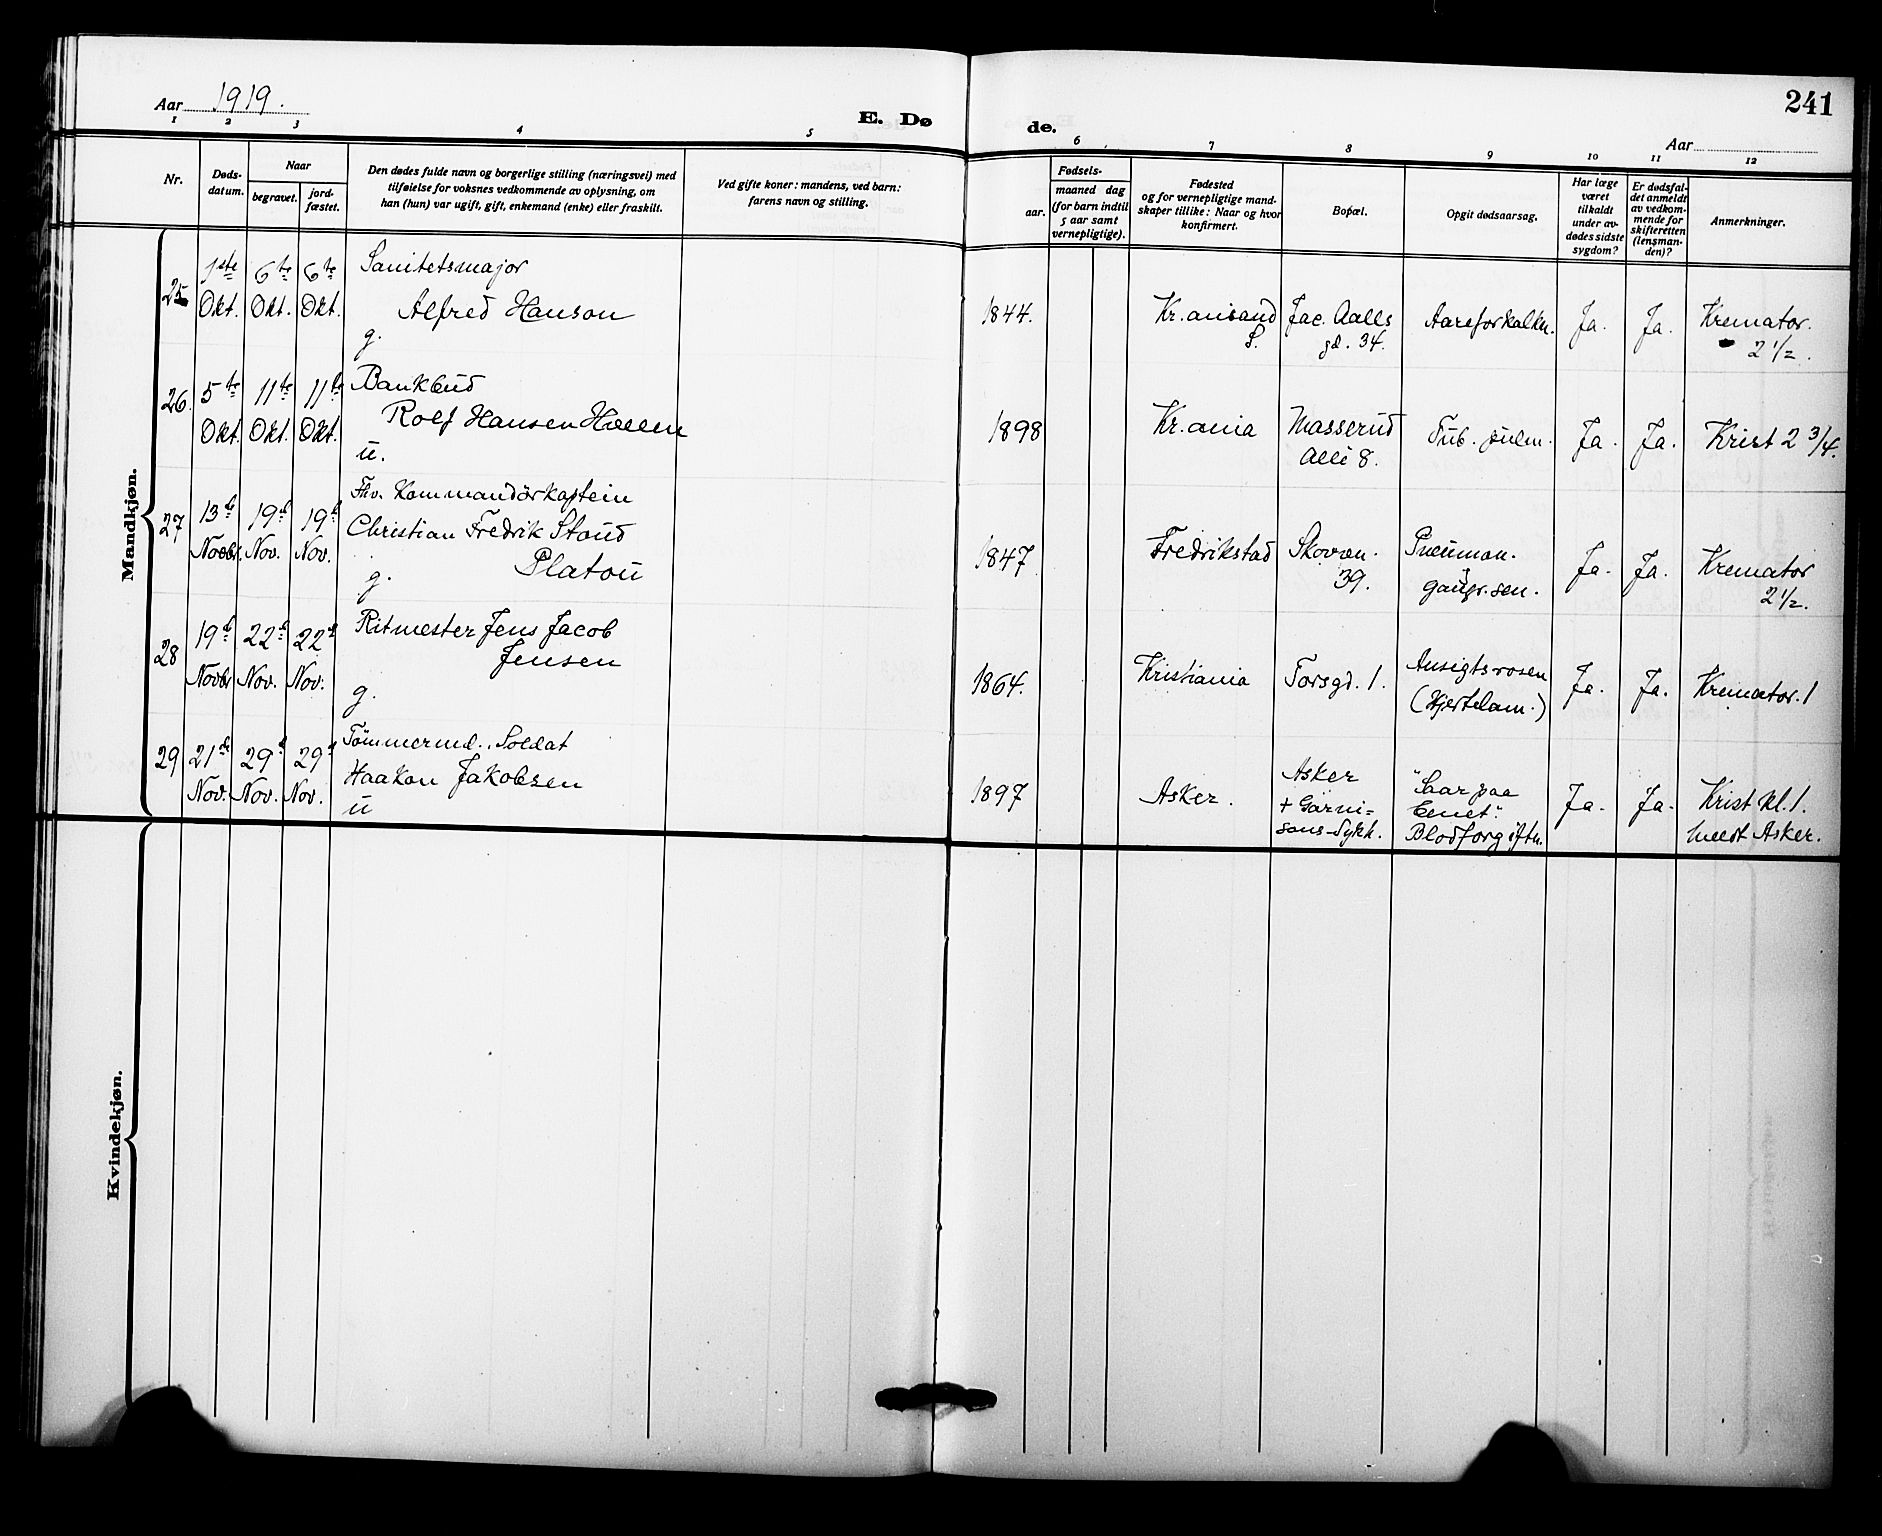 Aar 1919.
E. Døde.
241
Aar
1 2 3 4 5 6 7 8 9 10 11 12
Nr.
Døds-
datum.
Naar
begravet.
jord-
fæstet.
Den dødes fulde navn og borgerlige stilling (næringsvei) med
tilføielse for voksnes vedkommende av oplysning, om
han (hun) var ugift, gift, enkemand (enke) eller fraskilt.
Ved gifte koner: mandens, ved barn:
farens navn og stilling.
Fødsels-
aar.
maaned dag
(for barn indtil
5 aar samt
vernepligtige).
Fødested
og for vernepligtige mand-
skaper tillike: Naar og hvor
konfirmert.
Bopæl.
Opgit dødsaarsag.
Har læge
været
tilkaldt
under av-
dødes sidste
sygdom?
Er dødsfal-
det anmeldt
av vedkom-
mende for
skifteretten
(lensman-
den)?
Anmerkninger.
Mandkjøn.
25
1ste Okt.
6te Okt.
6te Okt.
Sanitetsmajor
Alfred Hanson
g.
1844.
Kr.ansand
S.
Jac. Aalls
gd. 34.
Aareforkalkn.
Ja.
Ja.
Kremator.
2 1/2.
26.
5te Okt.
11te Okt.
11te Okt.
Bankbud
Rolf Hansen
u.
1898
Kr.ania
Masserud
Alle 8.
Tub. pulm.
Ja.
Ja.
Krist 2 3/4.
27
13de Novbr.
19de Nov.
19de Nov.
Fhv. Kommandörkaptein
Christian Fredrik Stoud
Platou
g.
1847
Fredrikstad
Skovvn.
39.
Pneumon.
gangr. sen.
Ja.
Ja.
Kremator
2 1/2.
28
19de Novbr
22de Nov.
22de Nov.
Ritmester Jens Jacob
Jensen
g.
1864.
Kristiania
Torsgd. 1.
Ansigtsrosen
(Hjertelam.)
Ja.
Ja.
Kremator. 1
29
21de Nov.
29de Nov.
29de Nov.
Tömmermd. Soldat
Haakon Jakobsen
u
1897
Asker.
Asker
+ Garni=
sons-Sykh.
"Saar paa
Benet".
Blodforgiftn.
Ja.
Ja.
Krist kl. 1.
Asker.
Kvindekjøn.